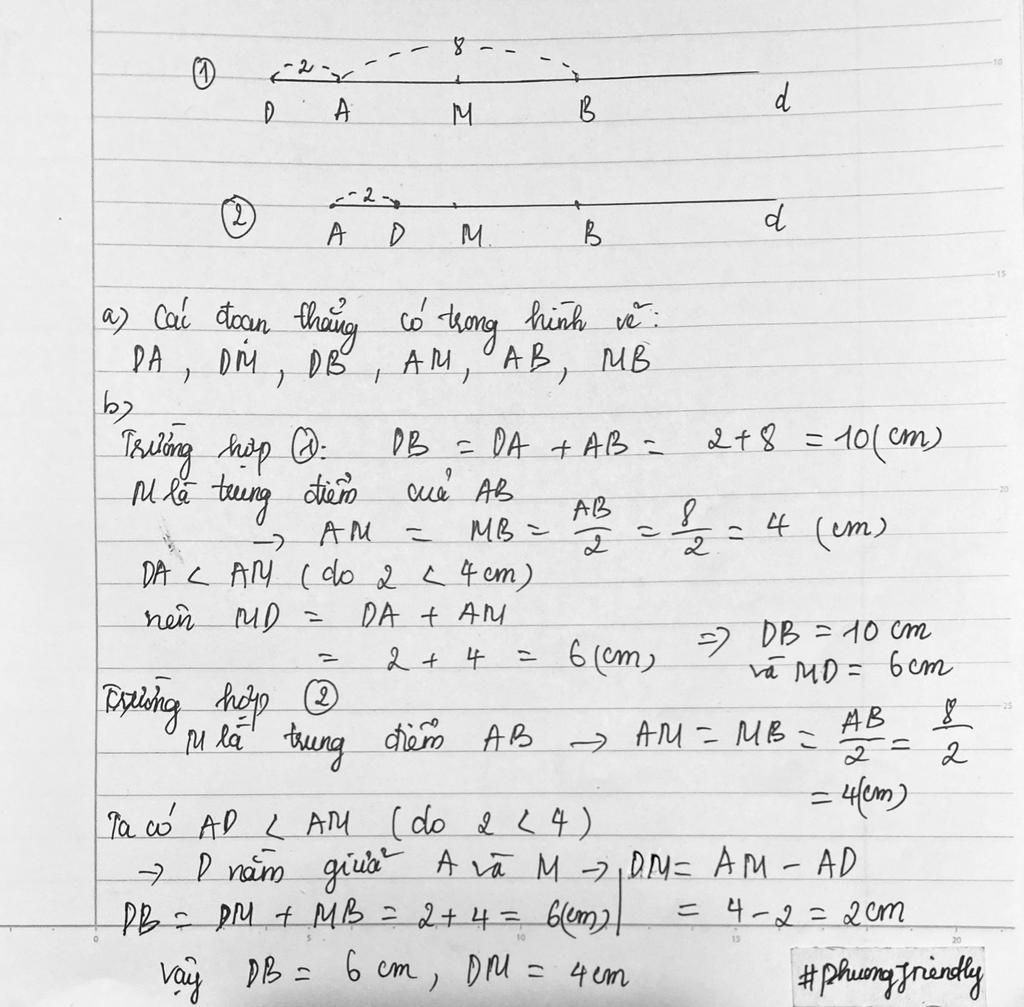 ① 2 8
D A M B d
② 2
A D M B d
a) Các đoạn thẳng có trong hình vẽ:
DA, DM, DB, AM, AB, MB
b)
Trường hợp ①: DB = DA + AB = 2+8 = 10(cm)
M là trung điểm của AB
→ AM = MB = AB/2 = 8/2 = 4 (cm)
DA < AM (do 2 < 4cm)
nên MD = DA + AM
= 2 + 4 = 6(cm) => DB = 10 cm
và MD = 6cm
Trường hợp ②
M là trung điểm AB → AM = MB = AB/2 = 8/2
= 4(cm)
Ta có AD < AM (do 2 < 4)
→ D nằm giữa A và M → DM = AM - AD
= 4 - 2 = 2cm
DB = DM + MB = 2+4 = 6(cm)
Vậy DB = 6cm, DM = 4cm
#phuongfriendly
10
15
20
25
0 5 10 15 20